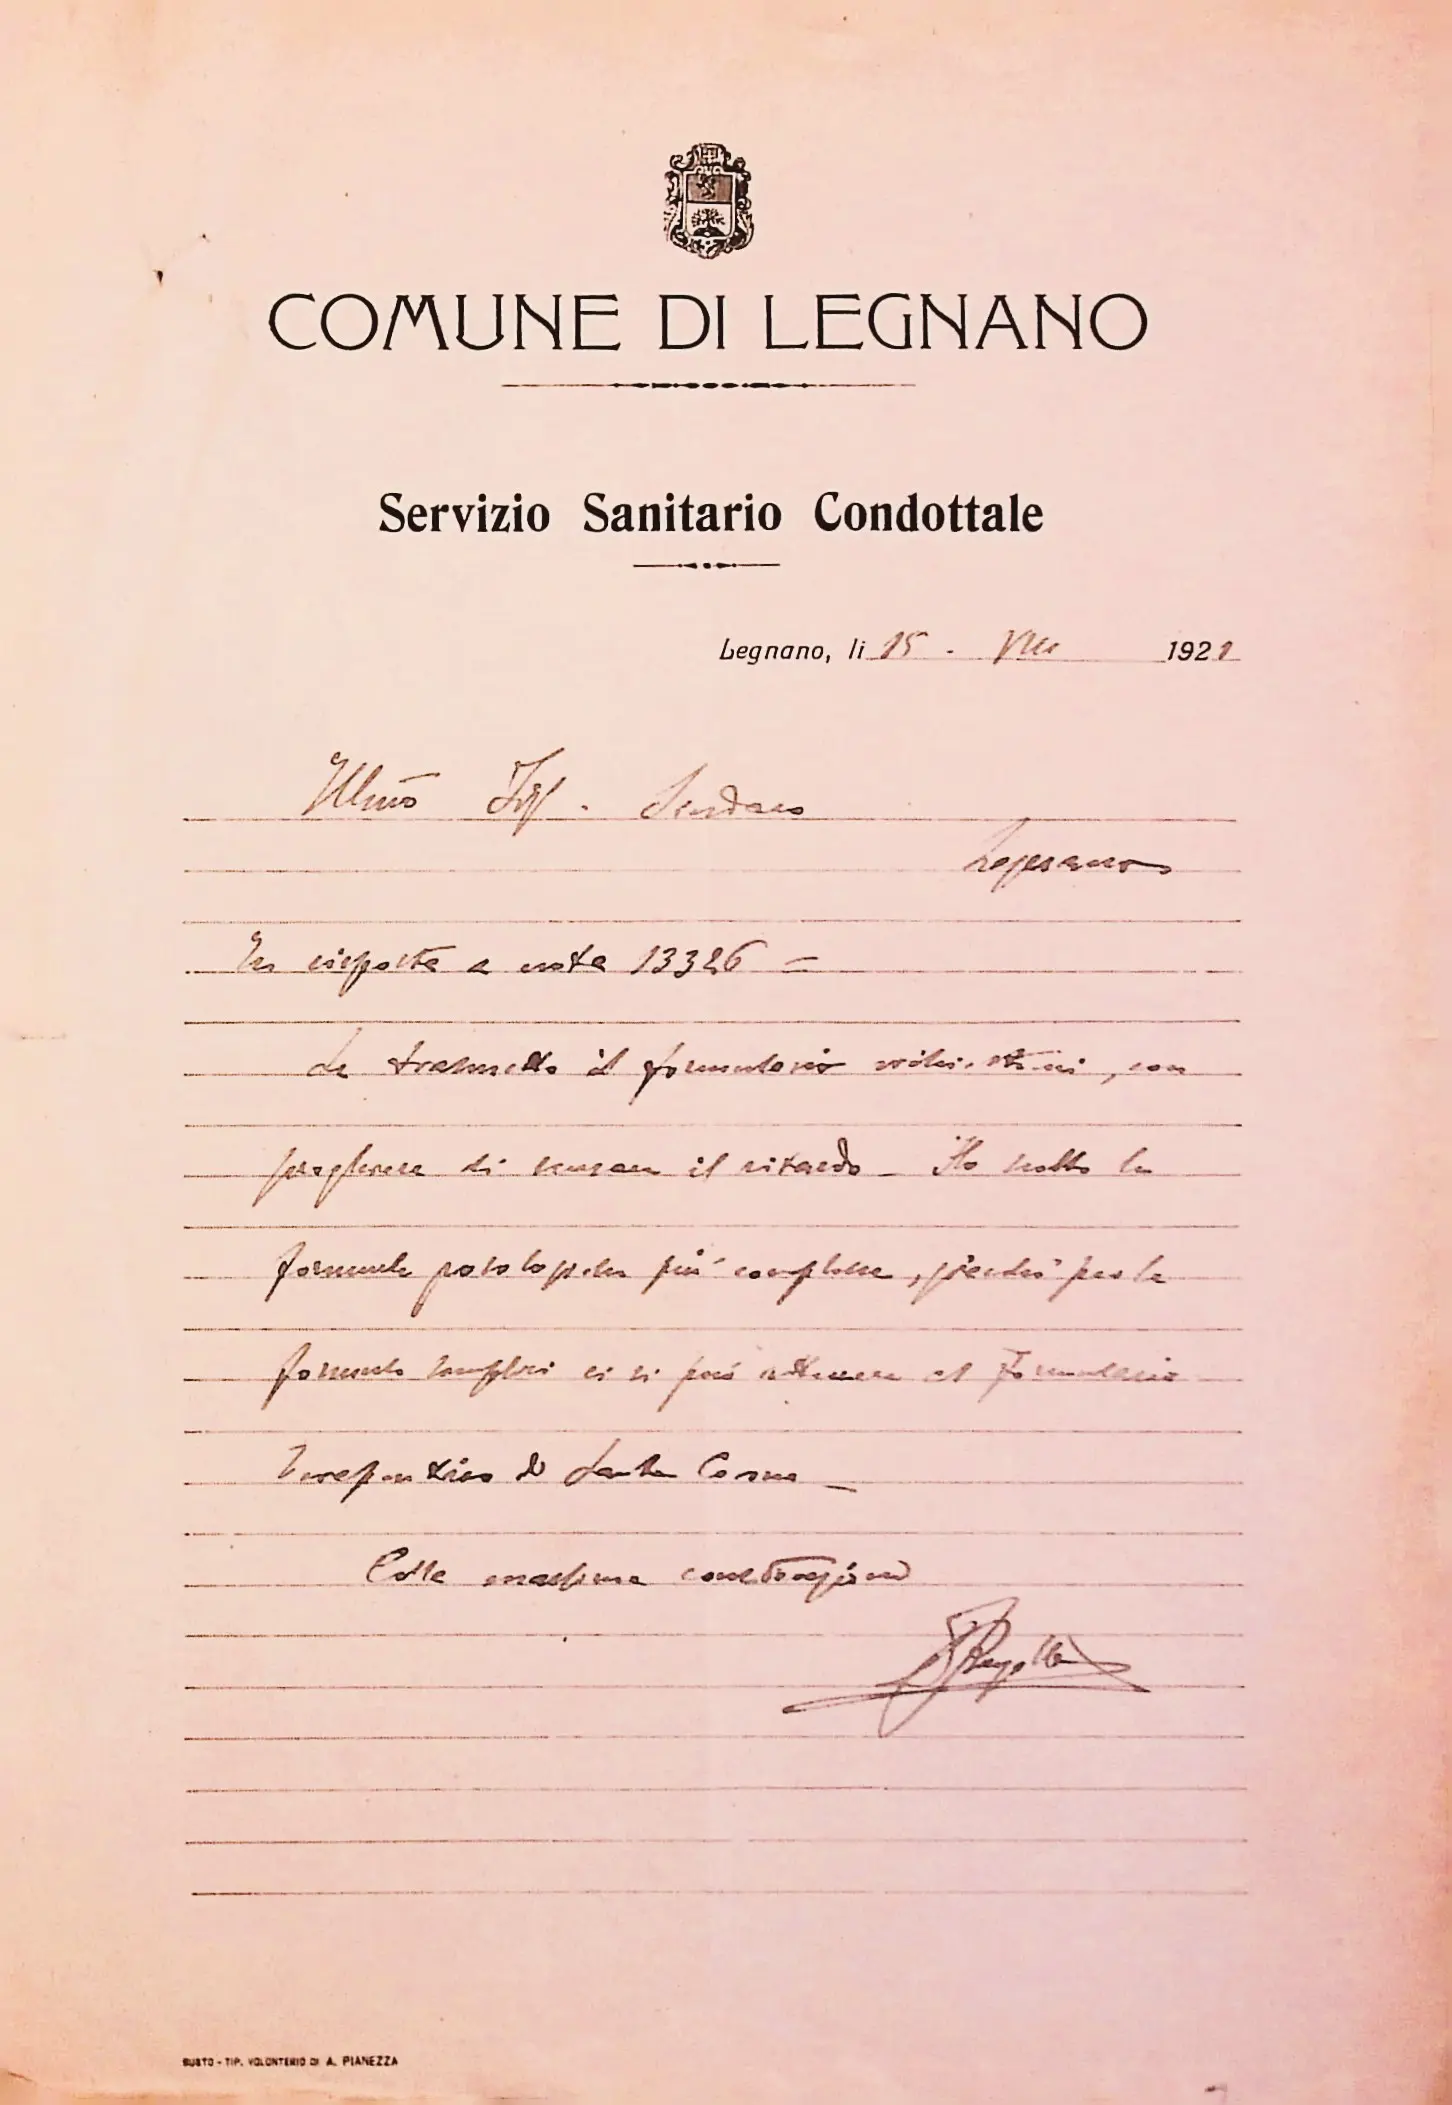 COMUNE DI LEGNANO
Servizio Sanitario Condottale
Legnano, li 15 - VIII 1921
Illmo Sig. Sindaco
Legnano
In risposta a nota 13326 =
Le trasmetto il formulario, con
preghiera di scusare il ritardo - Ho scelto le
formule più complesse, perché per le
formule semplici ci si può attenere al Formulario
Terapeutico di Santa Corona -
Colla massima considerazione
BUSTO - TIP. VOLONTERIO DI A. PIANEZZA